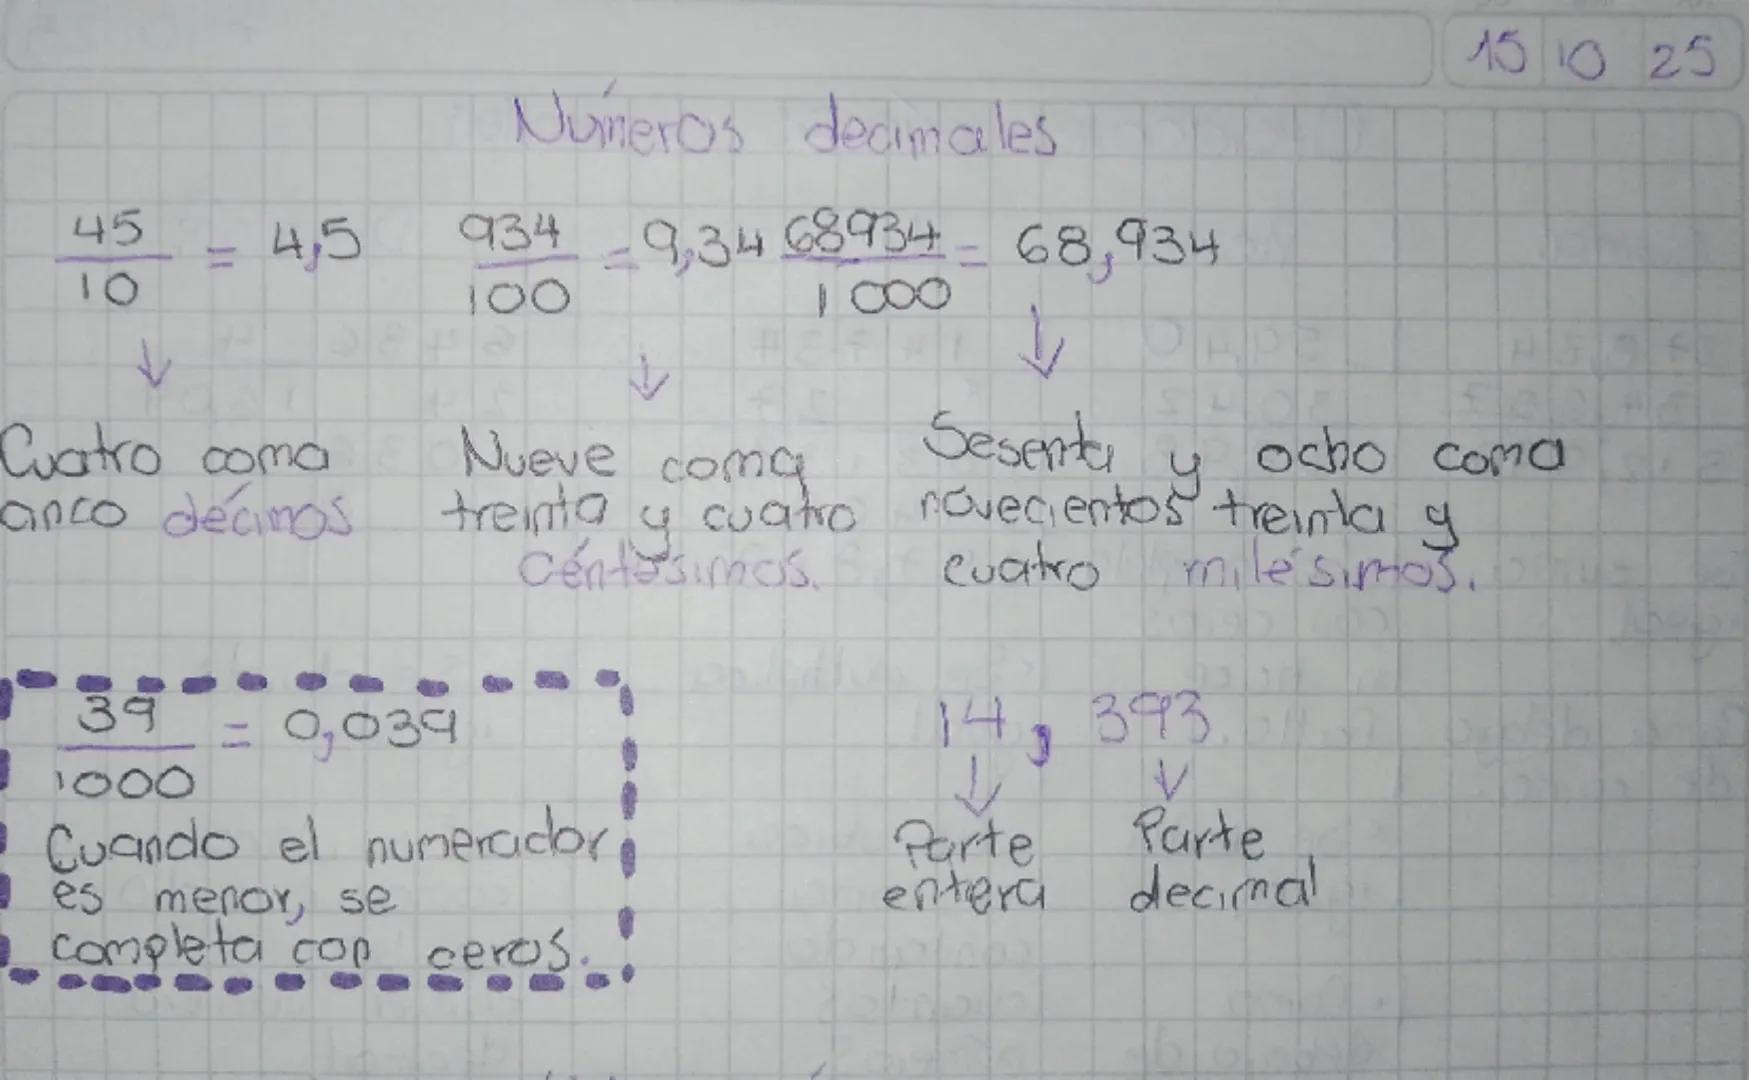 15 10 25
Números decimales
45/10 = 4,5 934/100 = 9,34 68934/1000 = 68,934
Cuatro coma
cinco décimos
Nueve coma
treinta y cuatro
centésimos.
Sesenta y ocho coma
novecientos treinta y
cuatro milésimos.
39/1000 = 0,039
Cuando el numerador
es menor, se
completa con ceros.
14, 393
Parte
entera
Parte
decimal